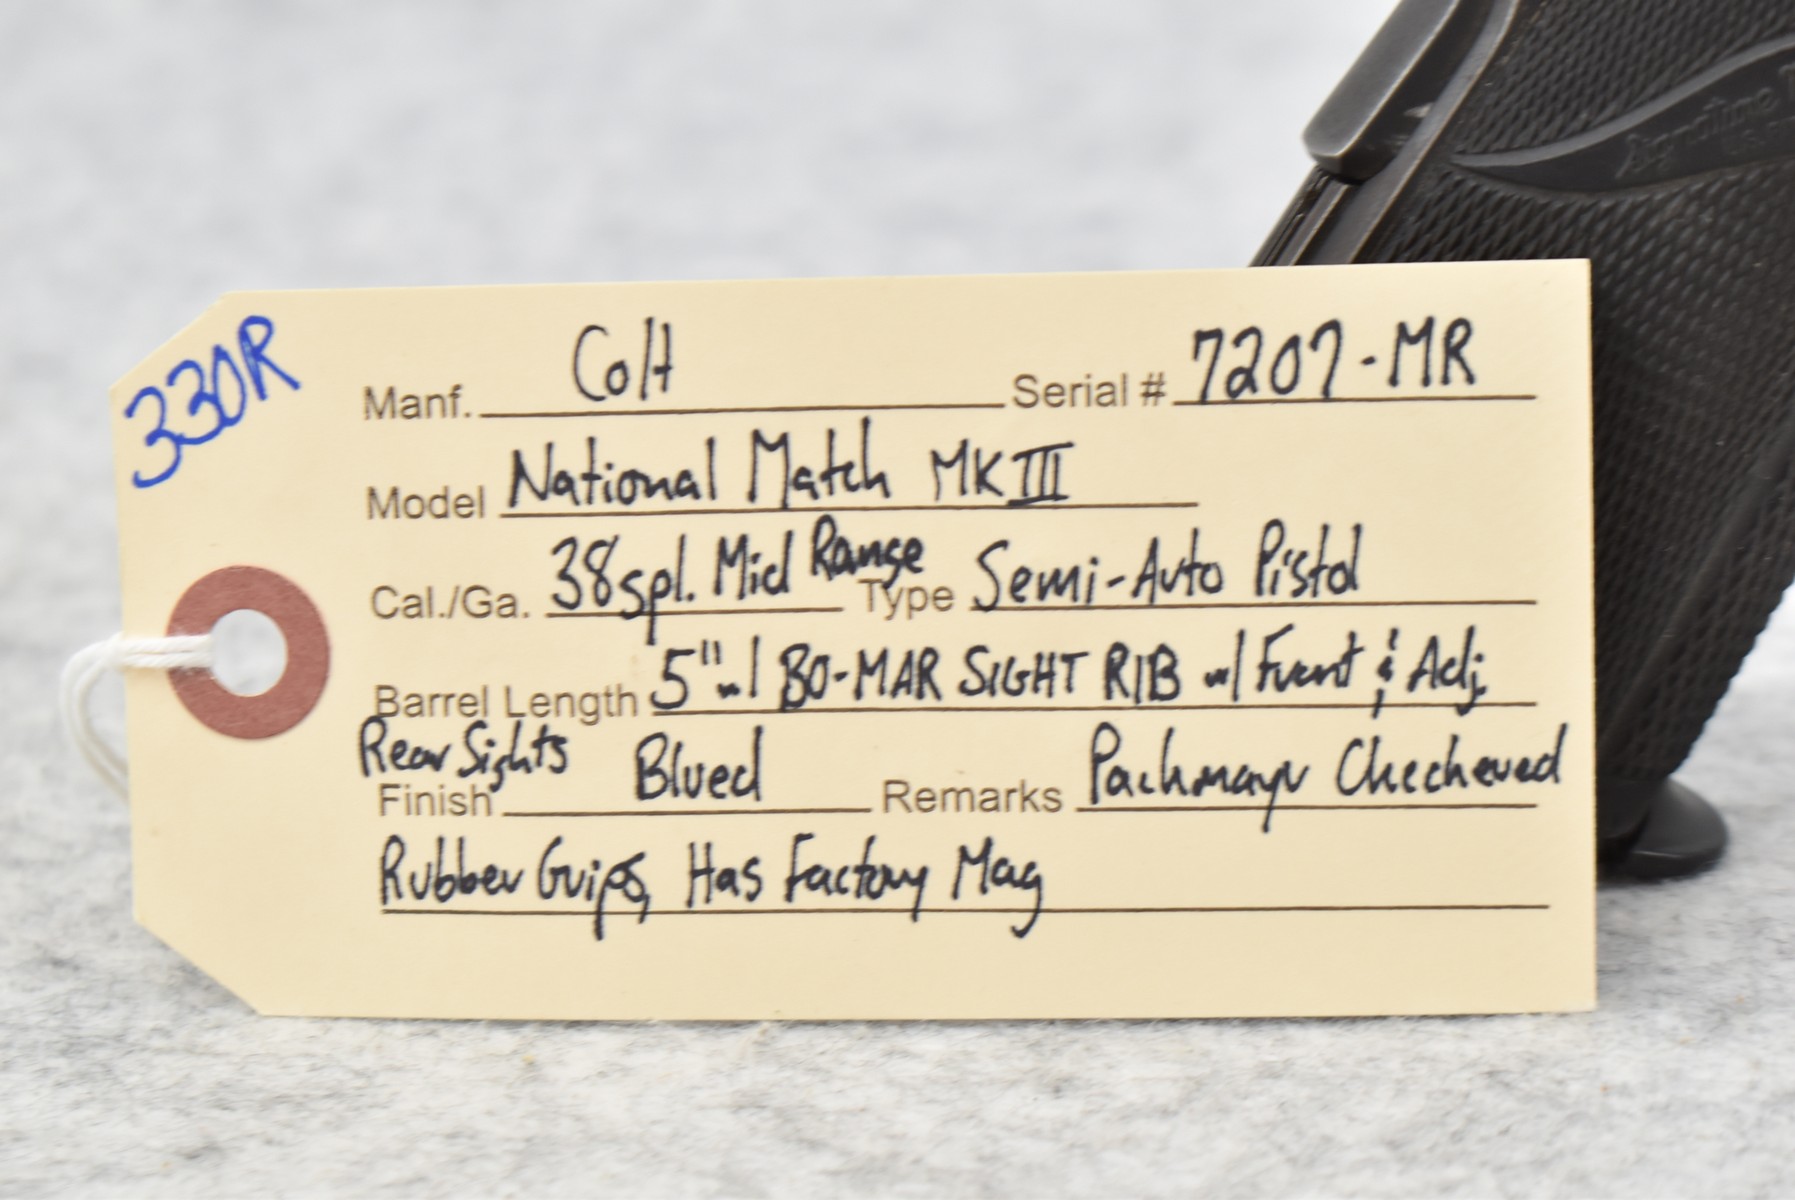 330R
Manf. Colt Serial # 7207-MR
Model National Match MK III
Cal./Ga. 38 spl. Mid Range Type Semi-Auto Pistol
Barrel Length 5" w/ BO-MAR SIGHT RIB w/ Front & Adj.
Rear Sights
Finish Blued Remarks Pachmayr Checkered
Rubber Grips, Has Factory Mag
Signature